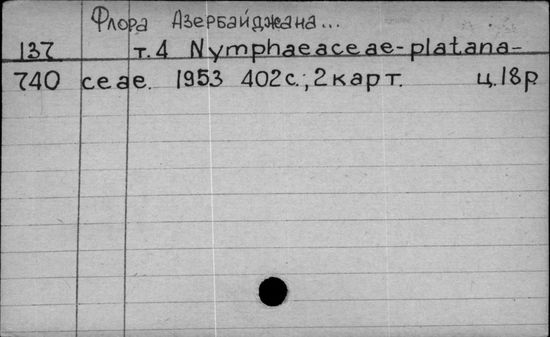 Флора Азербайджана...
137 т.4 Nymphaeaceae-platana-
740 ceae. 1953 402с.; 2 карт. ц.18р